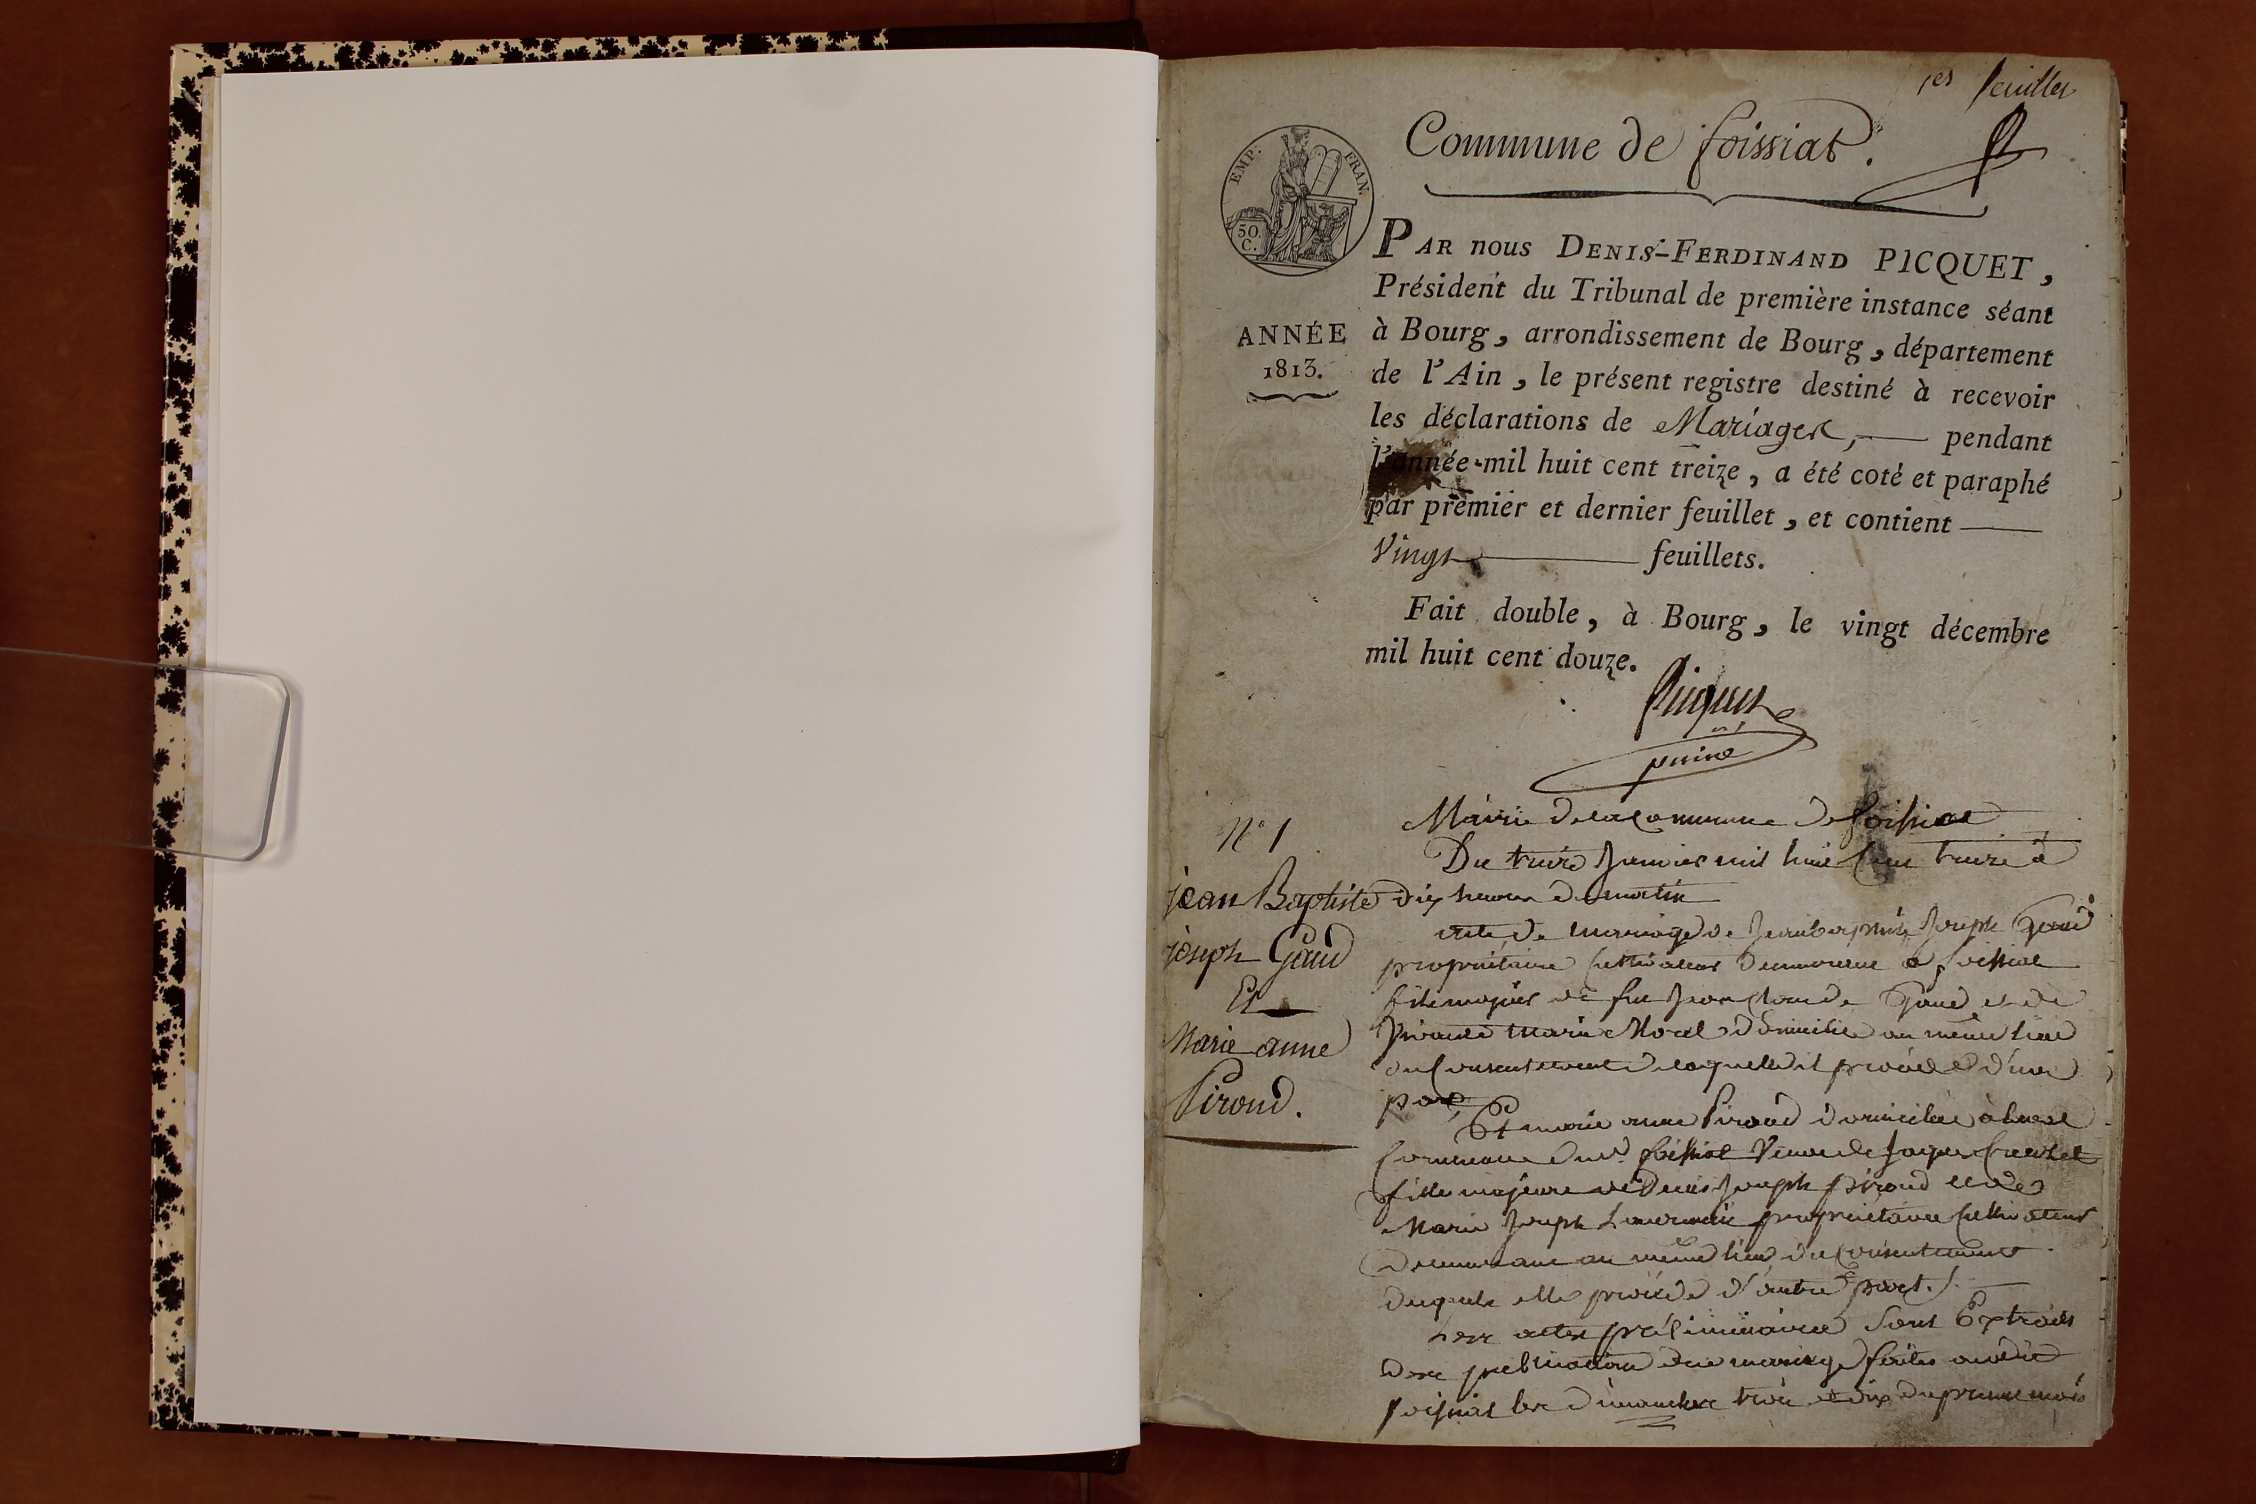 1er feuillet
Commune de foissiat.
EMP: FRAN.
50.
C.
PAR nous DENIS-FERDINAND PICQUET,
Président du Tribunal de première instance séant
à Bourg, arrondissement de Bourg, département
de l'Ain, le présent registre destiné à recevoir
les déclarations de Mariages, pendant
l'année mil huit cent treize, a été coté et paraphé
par premier et dernier feuillet, et contient
Vingt feuillets.
Fait double, à Bourg, le vingt décembre
mil huit cent douze.
ANNÉE
1813.
Picquet
N° 1
jean Baptiste
joseph Gaud
Et
Marie anne
Piroud.
Mairie de la Commune de foissiat
Du treize Janvier mil huit Cent treize à
dix heures du matin
acte de mariage de Jean baptiste Joseph Gaud
propriétaire Cultivateur demeurant à foissiat
fils majeur de feu Jean Claude Gaud et de
marie Morel domicilié au même lieu
du Consentement de laquelle il procède d'une
part
Et marie anne Piroud domiciliée
Commune dud. foissiat Veuve de Jaques
fille majeure de Denis Joseph piroud et de
Marie Joseph propriétaire Cultivateur
demeurant au même lieu du Consentement
desquels elle procède d'autre part.
Les actes préliminaires sont Extraits
des publications de mariage faites audit
foissiat les dimanches trois et dix du present mois